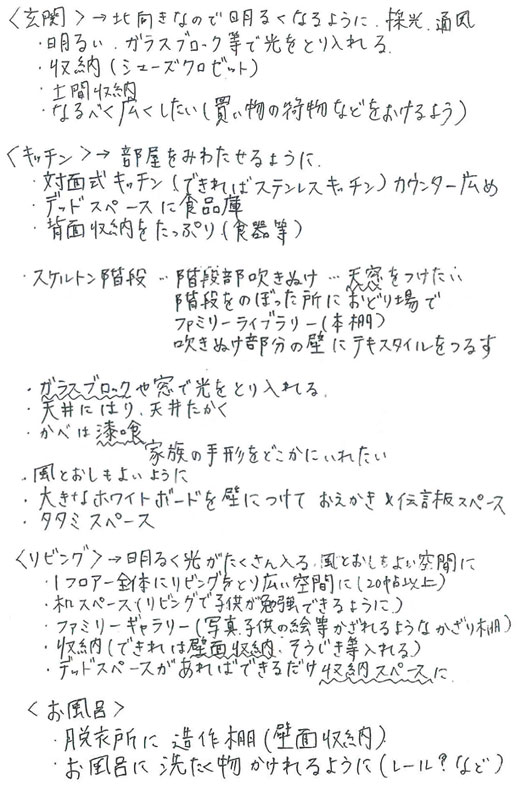 〈玄関〉→北向きなので明るくなるように.採光、通風
・明るい.ガラスブロック等で光をとり入れる.
・収納(シューズクロゼット)
・土間収納
・なるべく広くしたい(買い物の荷物などをおけるよう)
〈キッチン〉→部屋をみわたせるように.
・対面式キッチン(できればステンレスキッチン)カウンター広め
・デッドスペースに食品庫
・背面収納をたっぷり(食器等)
・スケルトン階段…階段部吹きぬけ…天窓をつけたい
階段をのぼった所におどり場で
ファミリーライブラリー(本棚)
吹きぬけ部分の壁にテキスタイルをつるす
・ガラスブロックや窓で光をとり入れる.
・天井にはり、天井たかく
・かべは漆喰
家族の手形をどこかにいれたい
・風とおしもよいように
・大きなホワイトボードを壁につけて おえかき&伝言板スペース
・タタミスペース
〈リビング〉→明るく光がたくさん入る.風とおしもよい空間に
・1フロアー全体にリビングをとり広い空間に(20帖以上)
・机スペース(リビングで子供が勉強できるように)
・ファミリーギャラリー(写真、子供の絵等かざれるようなかざり棚)
・収納(できれば壁面収納、そうじき等入れる)
・デッドスペースがあればできるだけ収納スペースに
〈お風呂〉
・脱衣所に造作棚(壁面収納)
・お風呂に洗たく物かけれるように(レール?など)